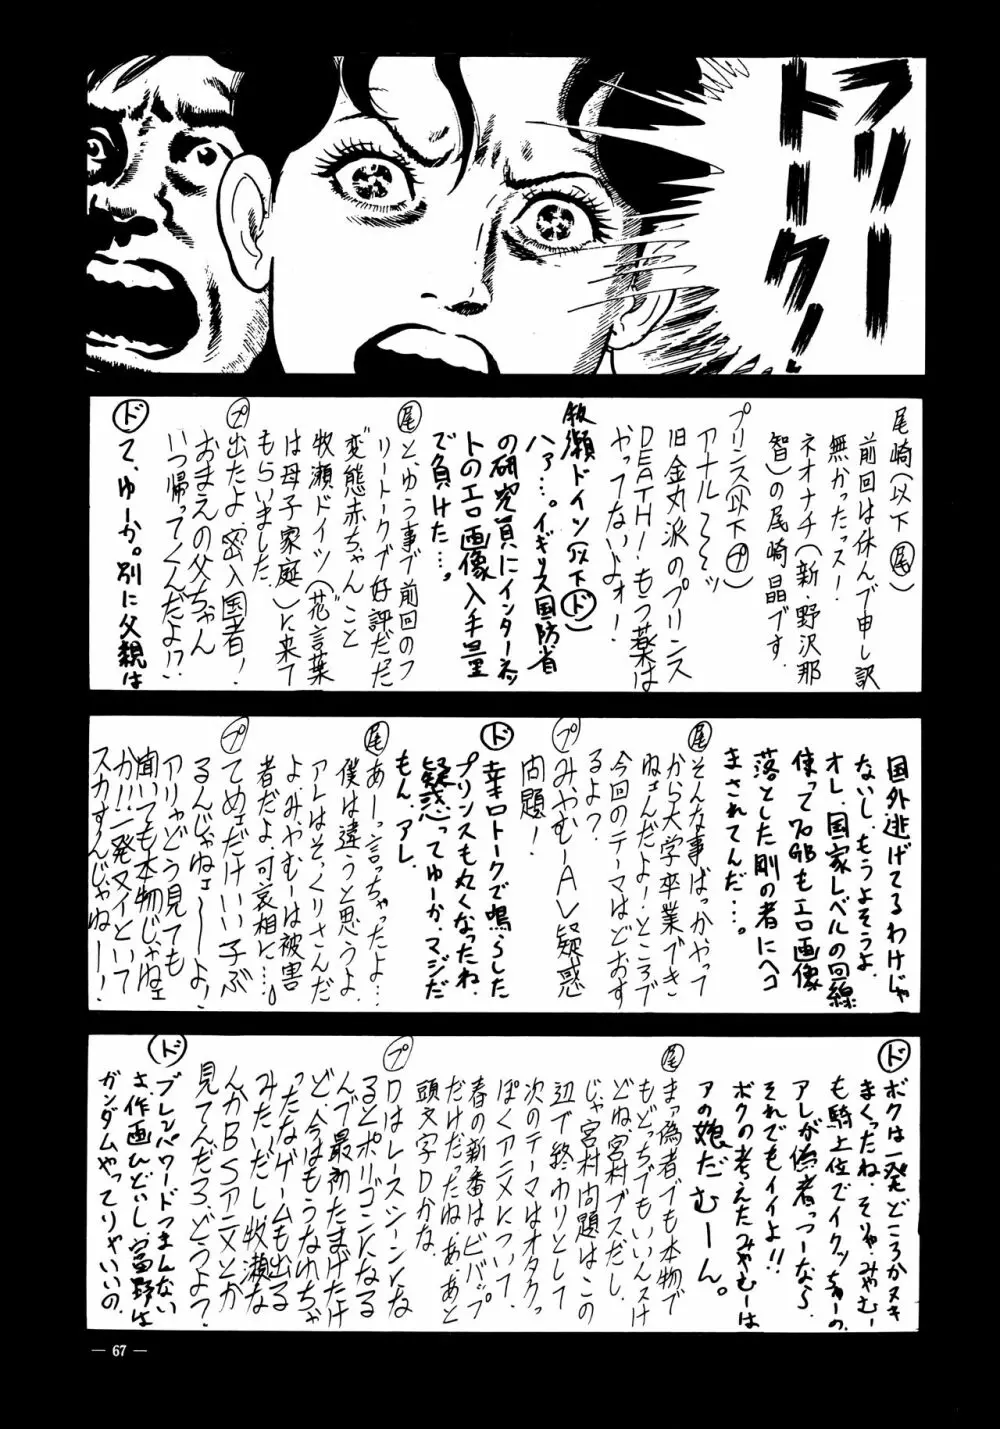 フリー
トーク!
尾崎(以下 尾)
前回は休んで申し訳
無かったっス!
ネオナチ(新・野沢那
智)の尾崎晶です。
プリンス(以下 プ)
アーナル〜〜ッ
旧金丸派のプリンス
DEATH!もつ薬は
やってないよォ!
牧瀬ドイツ(以下 ド)
ハァ…。イギリス国防省
の研究員にインターネッ
トのエロ画像入手量
で負けた…。
尾 と、ゆう事で前回のフ
リートークで好評だった
変態赤ちゃんこと
牧瀬ドイツ(花言葉
は母子家庭)に来て
もらいました。
プ 出たよ、密入国者!
おまえの父ちゃん
いつ帰ってくんだよ!?
ド て、ゆーか。別に父親は
国外逃げてるわけじゃ
ないし、もうよそうよ。
オレ、国家レベルの回線
使って70GBもエロ画像
落とした剛の者にヘコ
まされてんだ…。
尾 そんな事ばっかやって
から大学卒業でき
ねェんだよ!ところで
今回のテーマはどおす
るよ?
プ みやむーAV疑惑
問題!
ド 辛口トークで鳴らした
プリンスも丸くなったね。
疑惑ってゆーか、マジだ
もん、アレ。
尾 あーっ言っちゃったよ…
僕は違うと思うよ。
アレはそっくりさんだ
よ、みやむーは被害
者だよ、可哀相に…。
プ てめェだけいい子ぶ
るんじゃねェーーよ!
アリャどう見ても
聞いても本物じゃねェ
か!!一発ヌイといて
スカすんじゃねー!
ド ボクは一発どころかヌキ
まくったね。そりゃ、みやむー
も騎上位でイクッちゅーの。
アレが偽者っつーなら、
それでもイイよ!!
ボクの考えたみやむーは
アの娘だむーん。
尾 まっ偽者でも本物で
もどっちでもいいんスけ
どね、宮村ブスだし。
じゃ宮村問題はこの
辺で終わりとして
次のテーマはオタクっ
ぽくアニメについて。
春の新番はビバップ
だけだったね。ああと
頭文字Dかな。
プ Dはレースシーンにな
るとポリゴンになる
んで最初たまげたけ
ど、今はもうなれちゃ
ったなゲームも出る
みたいだし、牧瀬な
んかBSアニメとか
見てんだろ、どうよ?
ド ブレンパワードつまんない
さ、作画ひどいし、富野は
ガンダムやってりゃいいの。
— 67 —